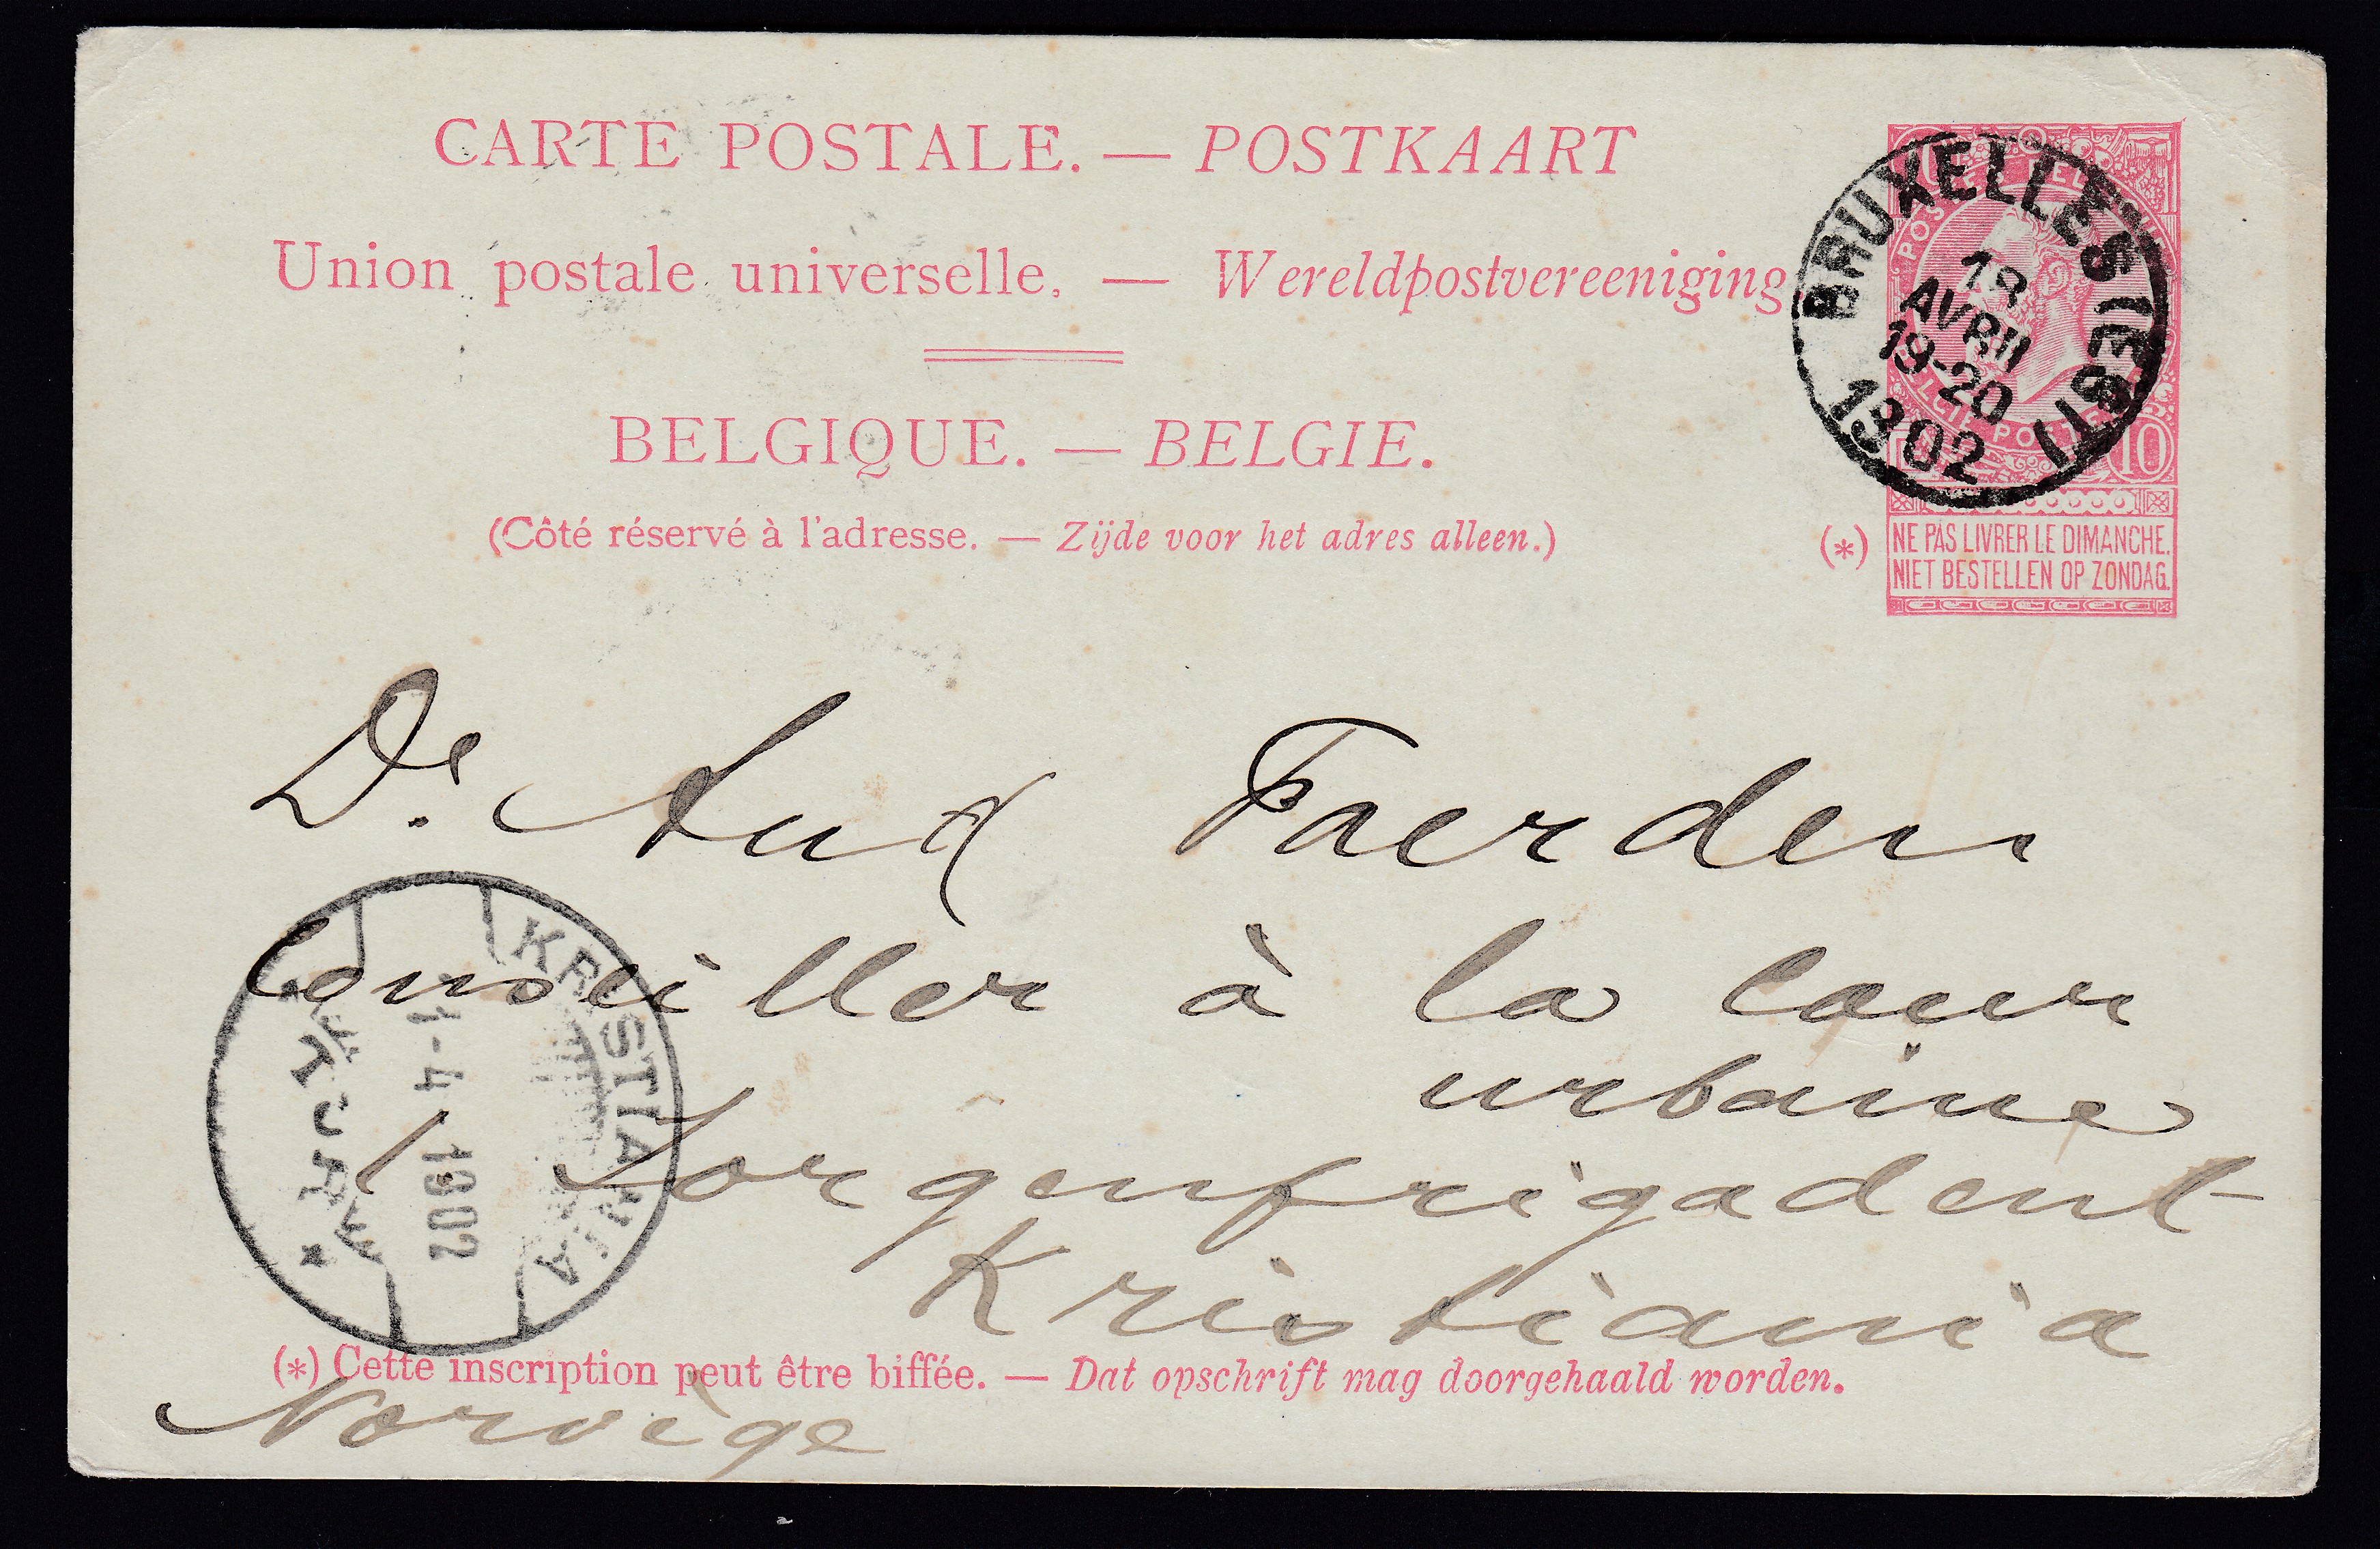 CARTE POSTALE. — POSTKAART
Union postale universelle. — Wereldpostvereeniging
BELGIQUE. — BELGIE.
(Côté réservé à l'adresse. — Zijde voor het adres alleen.)
BRUXELLES (EST)
18
AVRIL
19-20
1902
10
(*) NE PAS LIVRER LE DIMANCHE.
NIET BESTELLEN OP ZONDAG.
Dr. Faerden
Conseiller à la Cour
urbaine
1. Sorgenfrigadent
Kristiania
KRISTIANIA
1902
(*) Cette inscription peut être biffée. — Dat opschrift mag doorgehaald worden.
Norvège